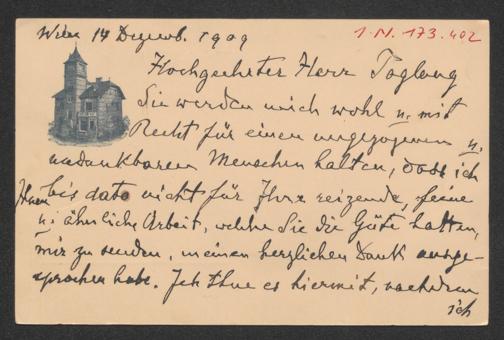 Wien 14 Dezemb. 1909
I.N. 173.402
Hochgeehrter Herr Taglang
Sie werden mich wohl u. mit
Recht für einen ungezogenen u.
undankbaren Menschen halten, dass ich
Ihnen bis dato nicht für Ihre reizende, feine
u. ähnliche Arbeit, welche Sie die Güte hatten,
mir zu senden, meinen herzlichen Dank ausge-
sprochen habe. Ich thue es hiermit, nachdem
ich